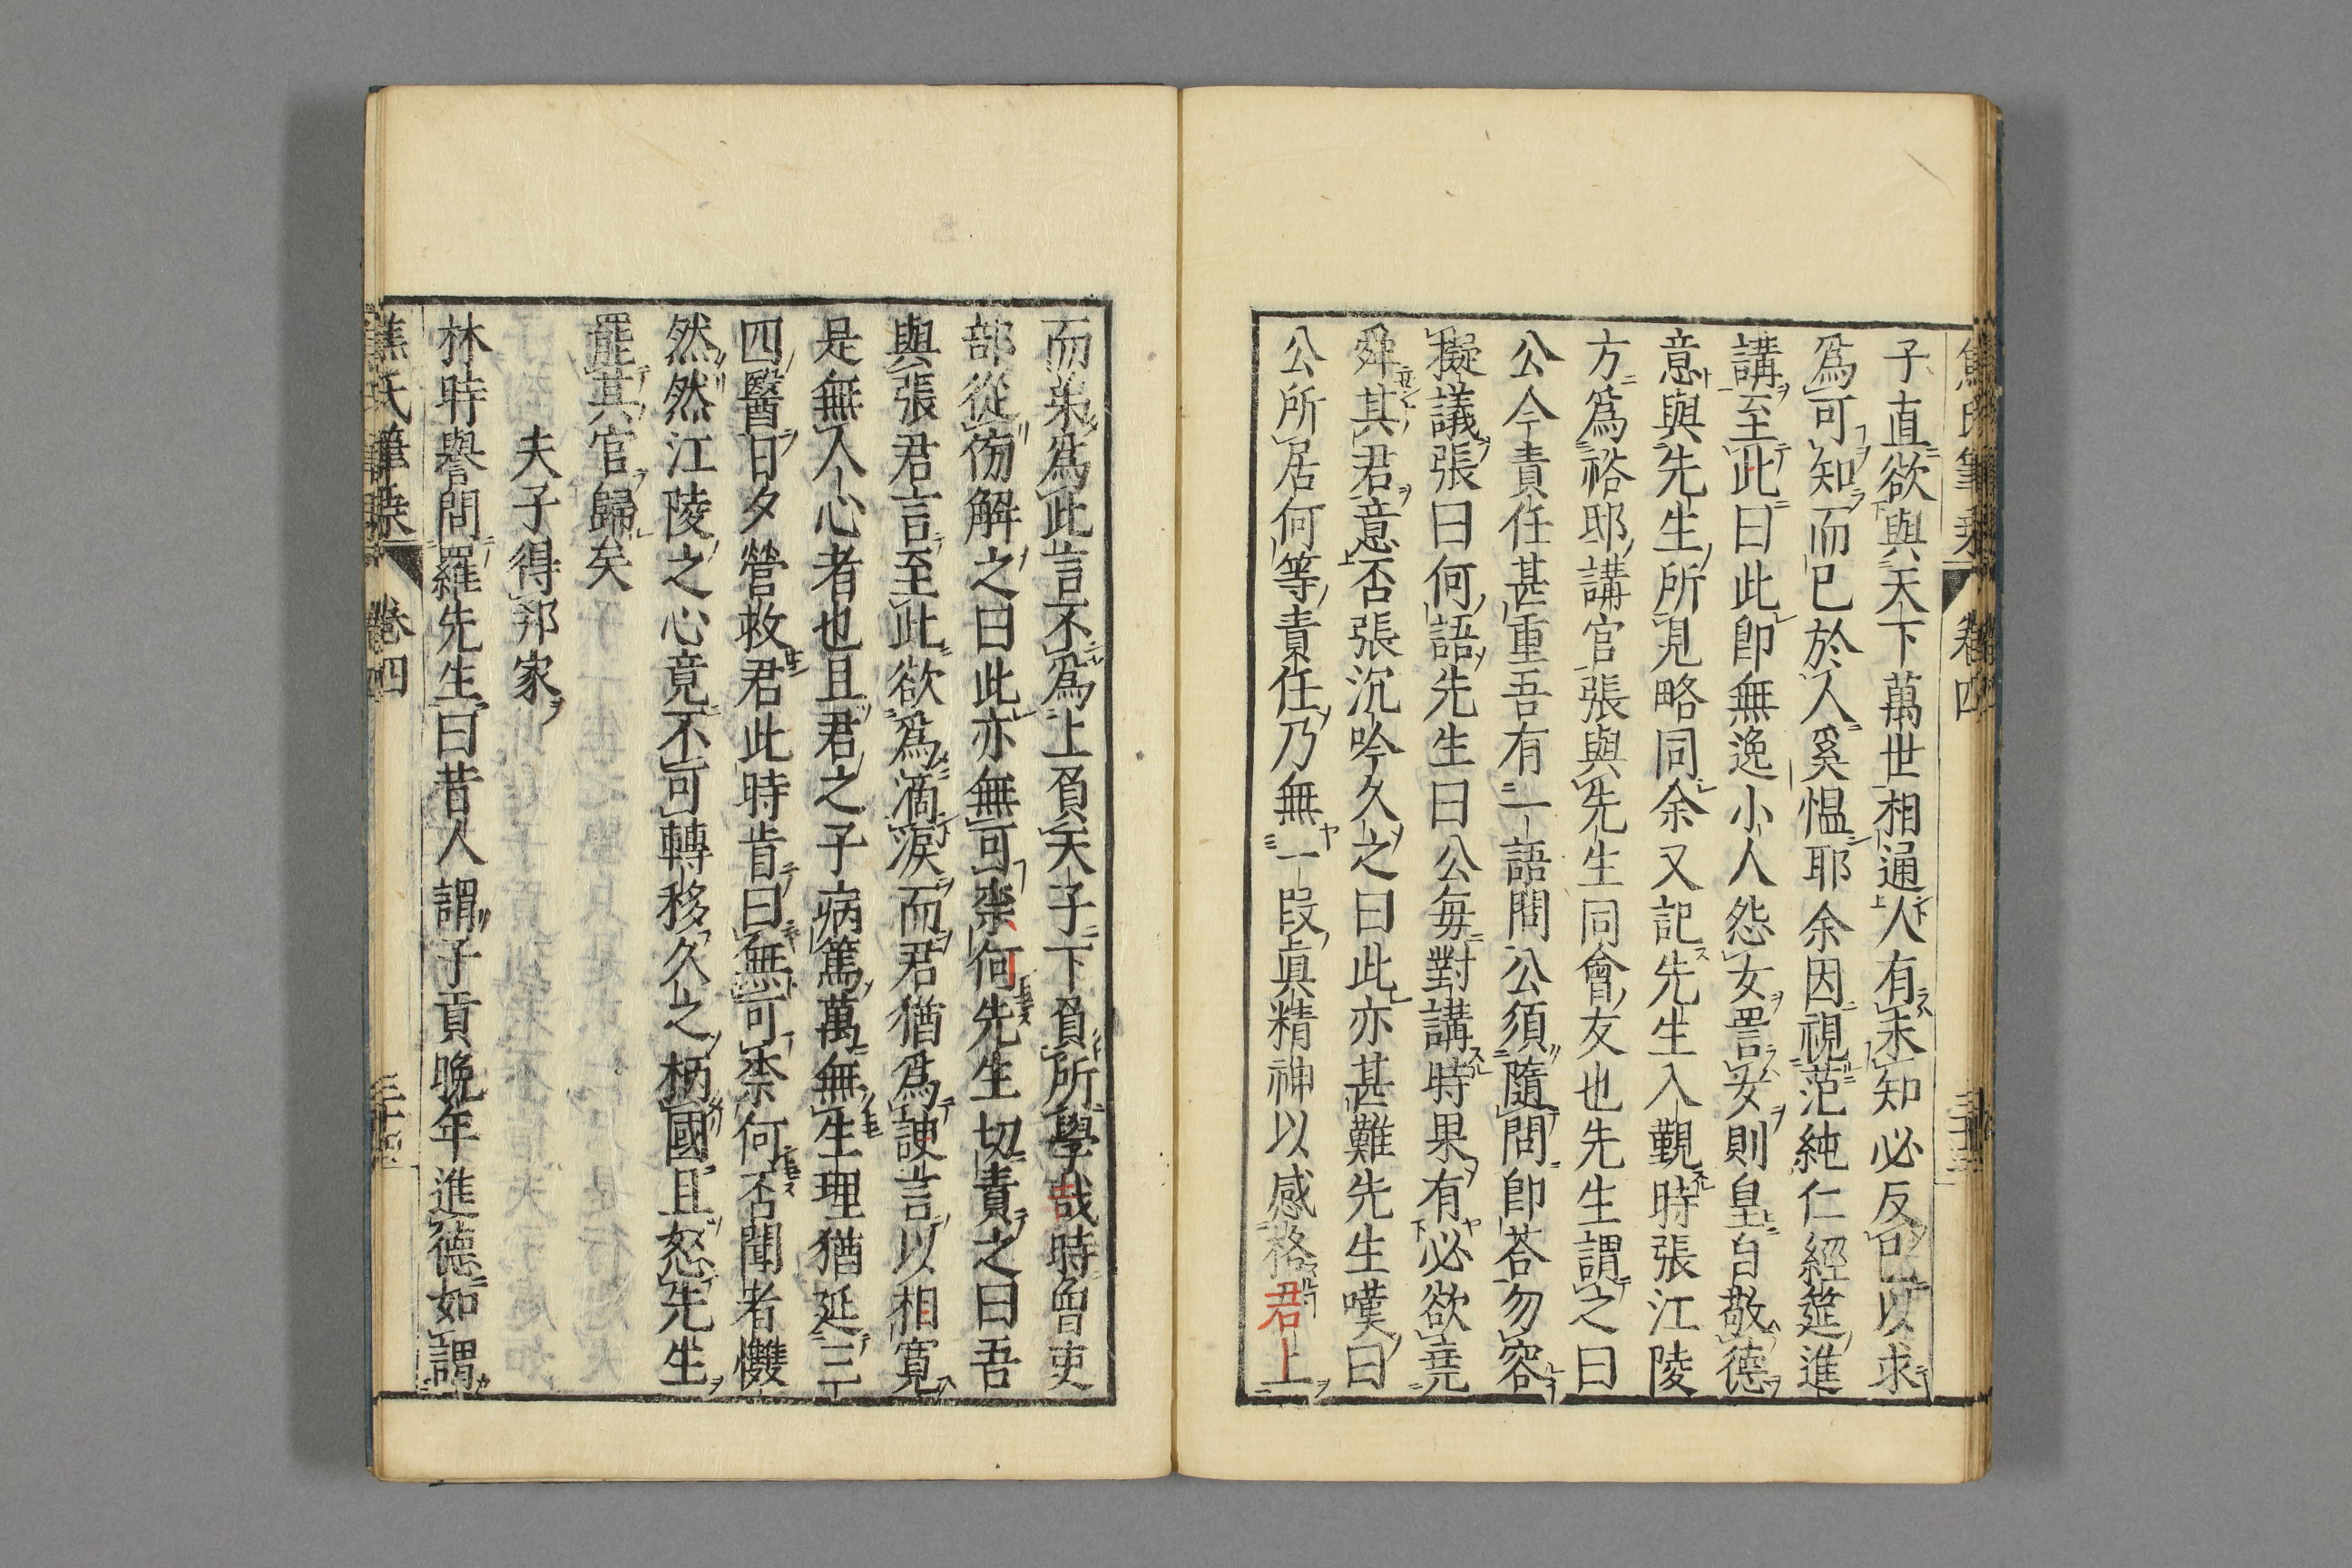 焦氏筆乘 卷四
子直欲與天下萬世相通人有未知必反已以求
爲可知而已於人奚慍耶余因視范純仁經筵進
講至此曰此卽無逸小人怨女詈女則皇自敬德
意與先生所見略同余又記先生入覲時張江陵
方爲裕邸講官張與先生同會友也先生謂之曰
公今責任甚重吾有一語問公須隨問卽荅勿容
擬議張曰何語先生曰公每對講時果有必欲堯
舜其君意否張沉吟久之曰此亦甚難先生嘆曰
公所居何等責任乃無一段眞精神以感格君上
而柰爲此言不爲上負天子下負所學哉時曾吏
部從傍解之曰此亦無可柰何先生切責之曰吾
與張君言至此欲爲滴淚而君猶爲諛言以相寬
是無人心者也且君之子病篤萬無生理猶延三
四醫日夕營救君此時肯曰無可柰何否聞者戄
然然江陵之心竟不可轉移久之柄國且怒先生
罷其官歸矣
夫子得邦家
林時譽問羅先生曰昔人謂子貢晚年進德如謂
焦氏筆乘 卷四